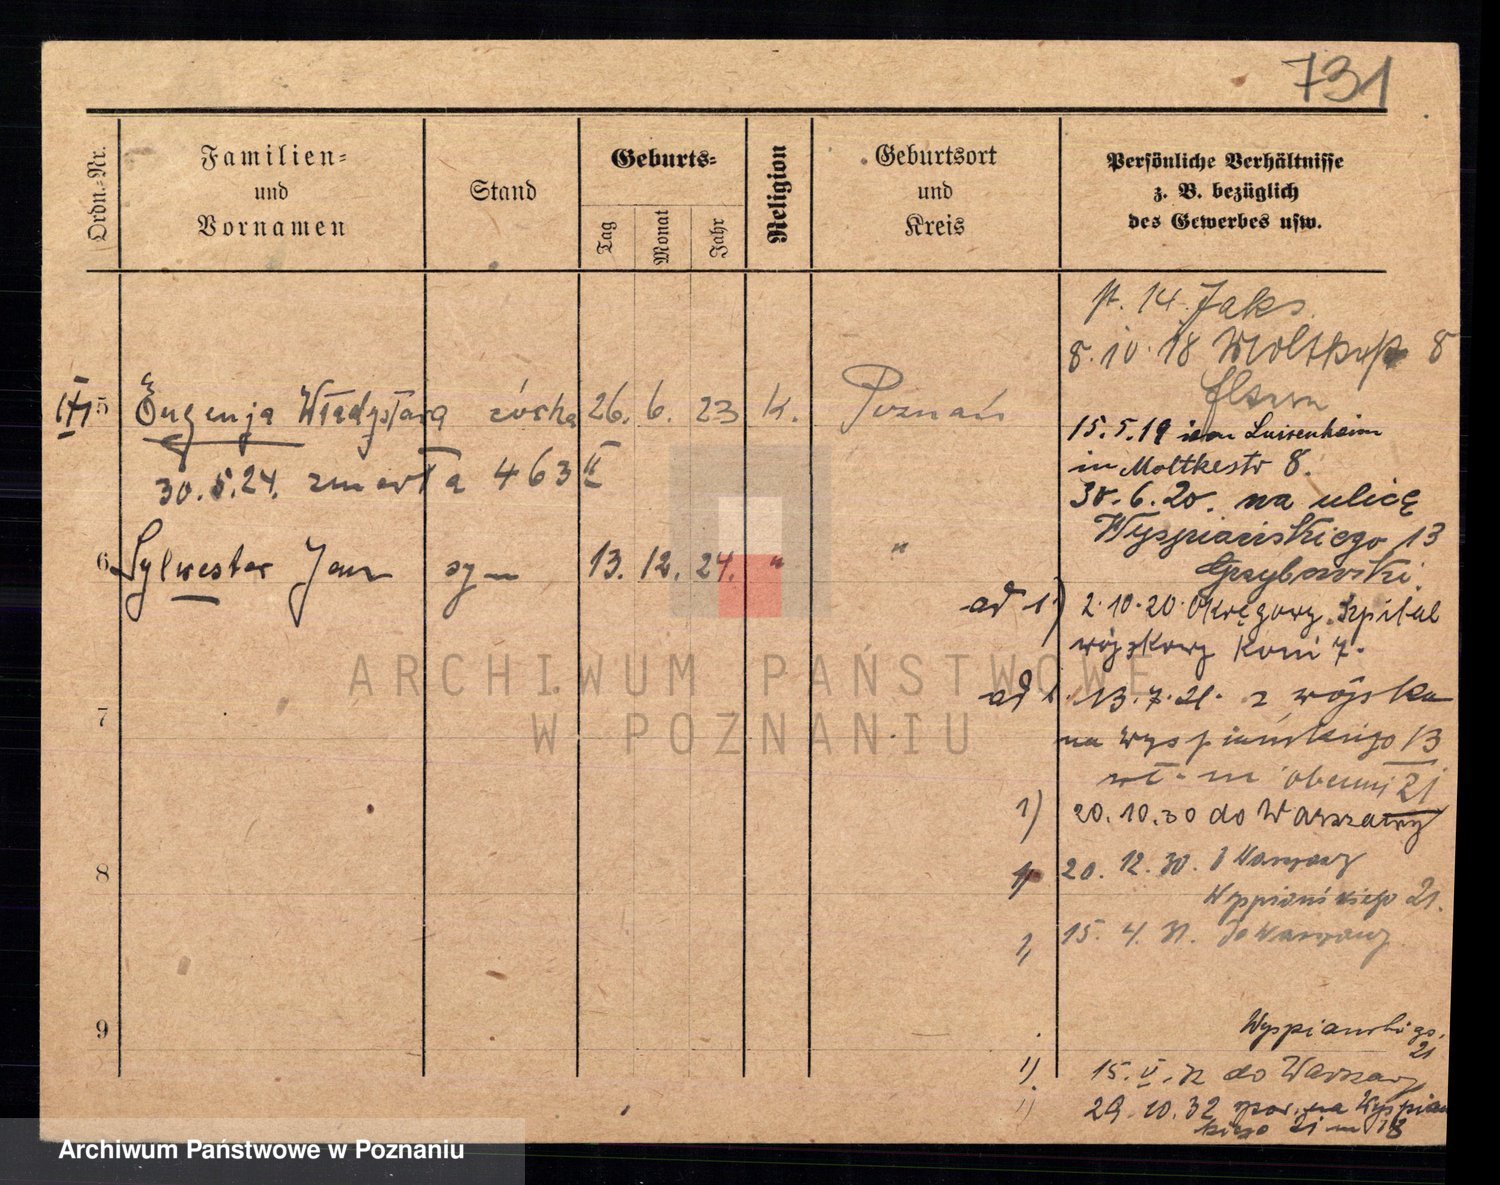 731
Ordn.-Nr.
Familien-
und
Vornamen
Stand
Geburts-
Tag
Monat
Jahr
Religion
Geburtsort
und
Kreis
Persönliche Verhältnisse
z. B. bezüglich
des Gewerbes usw.
14. Jaks.
8.10.18 Moltkestr 8
Eltern
5 Eugenja Władysława córka 26. 6. 23 K. Poznań
15.5.19 von Luisenheim
in Moltkestr 8.
30.5.24. zmarła 463 II
30.6.20. na ulicę
Wyspiańskiego 13
Grzybowski.
6 Sylwester Jan syn 13. 12. 24. " "
ad 1) 2.10.20. Okręgowy Szpital
wojskowy 7.
ad 1. 13.7.21. z wojska
na Wyspiańskiego 13
obecnie 21
7
1) 20.10.30 do Warszawy
8
20.12.30. z Warszawy
Wyspiańskiego 21.
1) 15.4.31. do Warszawy
9
Wyspiańskiego.
21
1) 15.V.32 do Warszawy
1) 29.10.32 na Wyspiań
skiego 21 m 13
ARCHIWUM PAŃSTWOWE
W POZNANIU
Archiwum Państwowe w Poznaniu